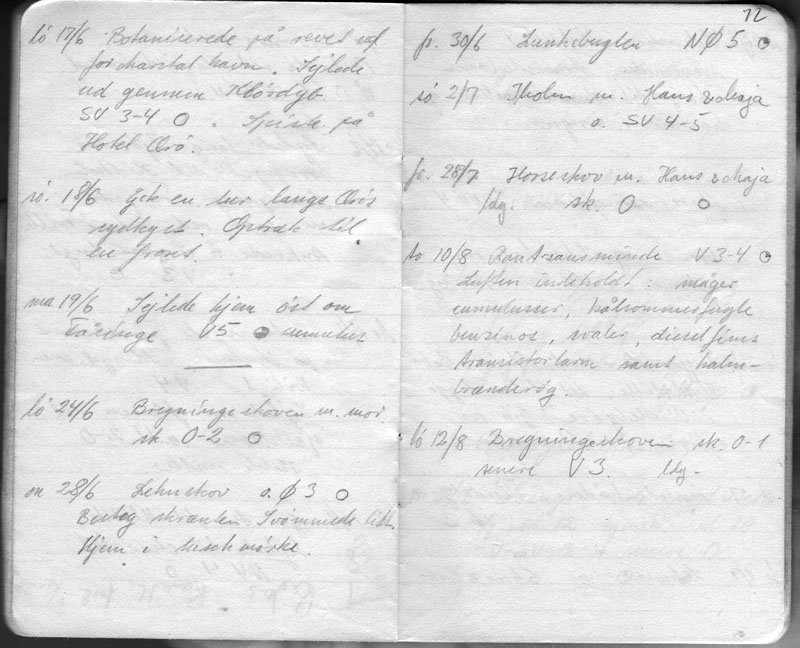 lö 17/6 Botaniserede på revet ud
for charetal havn. Sejlede
ud gennem Klördyb
SV 3-4 O. Spiste på
Hotel Ærö.
sö. 18/6 Gik en tur langs Ærös
sydkyst. Optrak til
en front.
ma 19/6 Sejlede hjem öst om
Tåsinge V5 cumulus
lö 24/6 Bregninge skoven m. mor.
sk. 0-2 O
on 28/6 Lehnskov o. Ø 3 O
Besteg skrænten Svömmede lidt.
Hjem i buschmörke.
12
fr. 30/6 Lunkebugten NØ 5 O
sö 2/7 Iholm m. Hans & Maja
o. SV 4-5
fr. 28/7 Horseskov m. Hans & Maja
ldg. sk. O O
to 10/8 Rantzausminde V 3-4 O
Luften indeholdt: måger
cumulusser, kålsommerfugle
benzinos, svaler, dieselfims
transistorlarm samt halm-
brænderög.
lö 12/8 Bregningeskoven sk. 0-1
senere V 3. ldg.